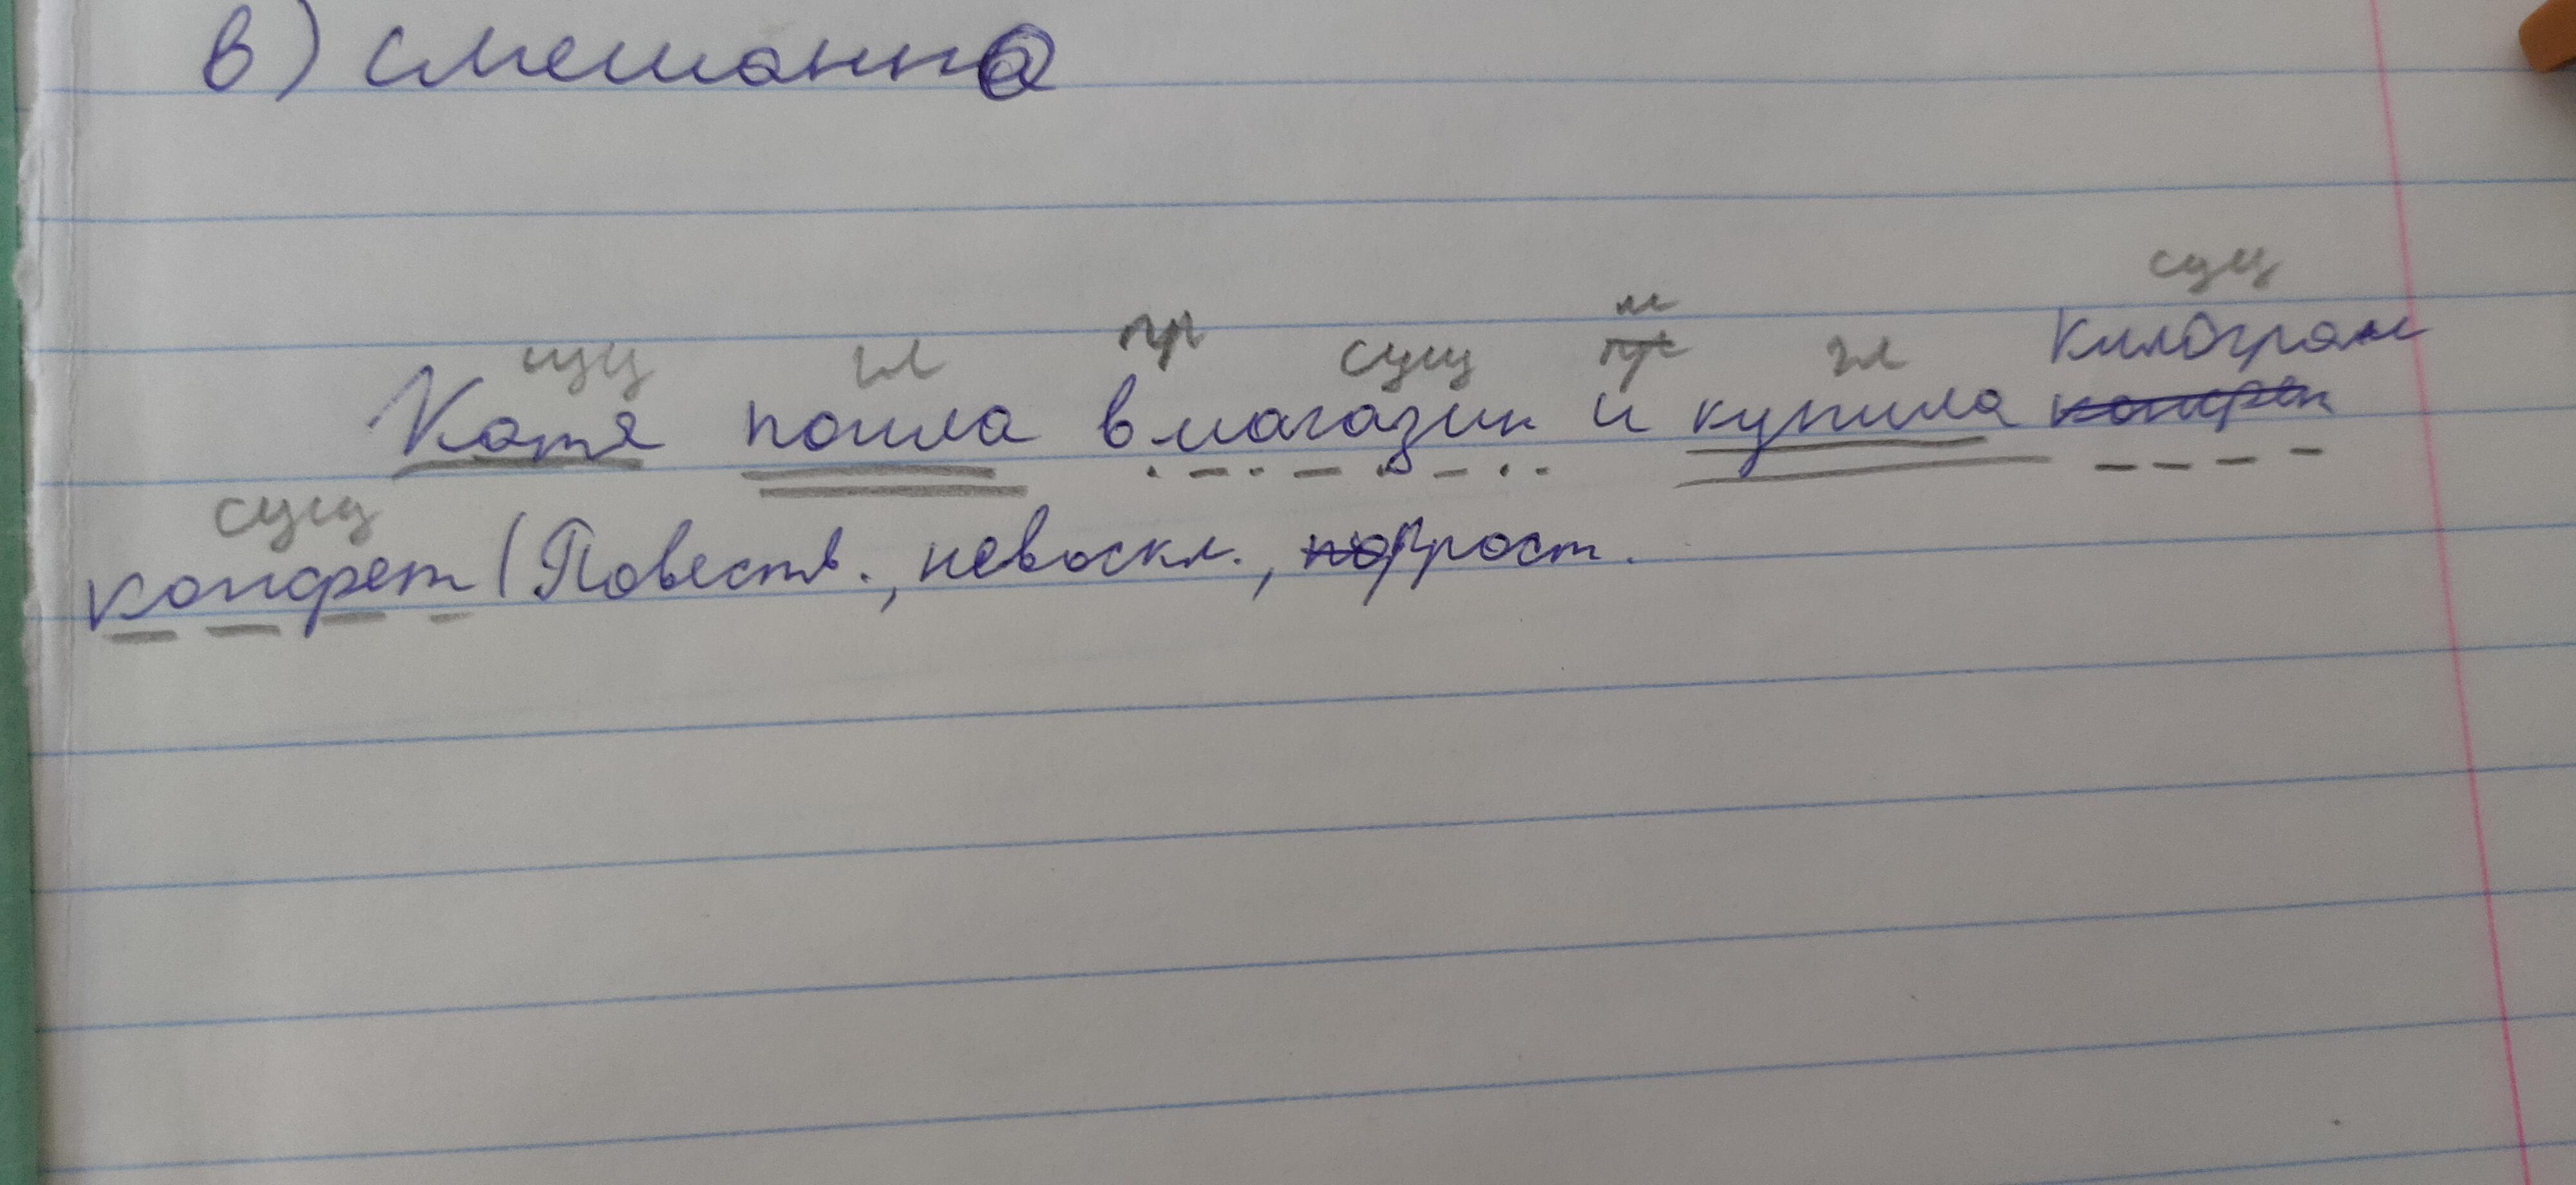 в) смешанна
сущ гл пр сущ гл сущ
Катя пошла в магазин и купила килограм
сущ
конфет (Повеств., невоскл., прост.